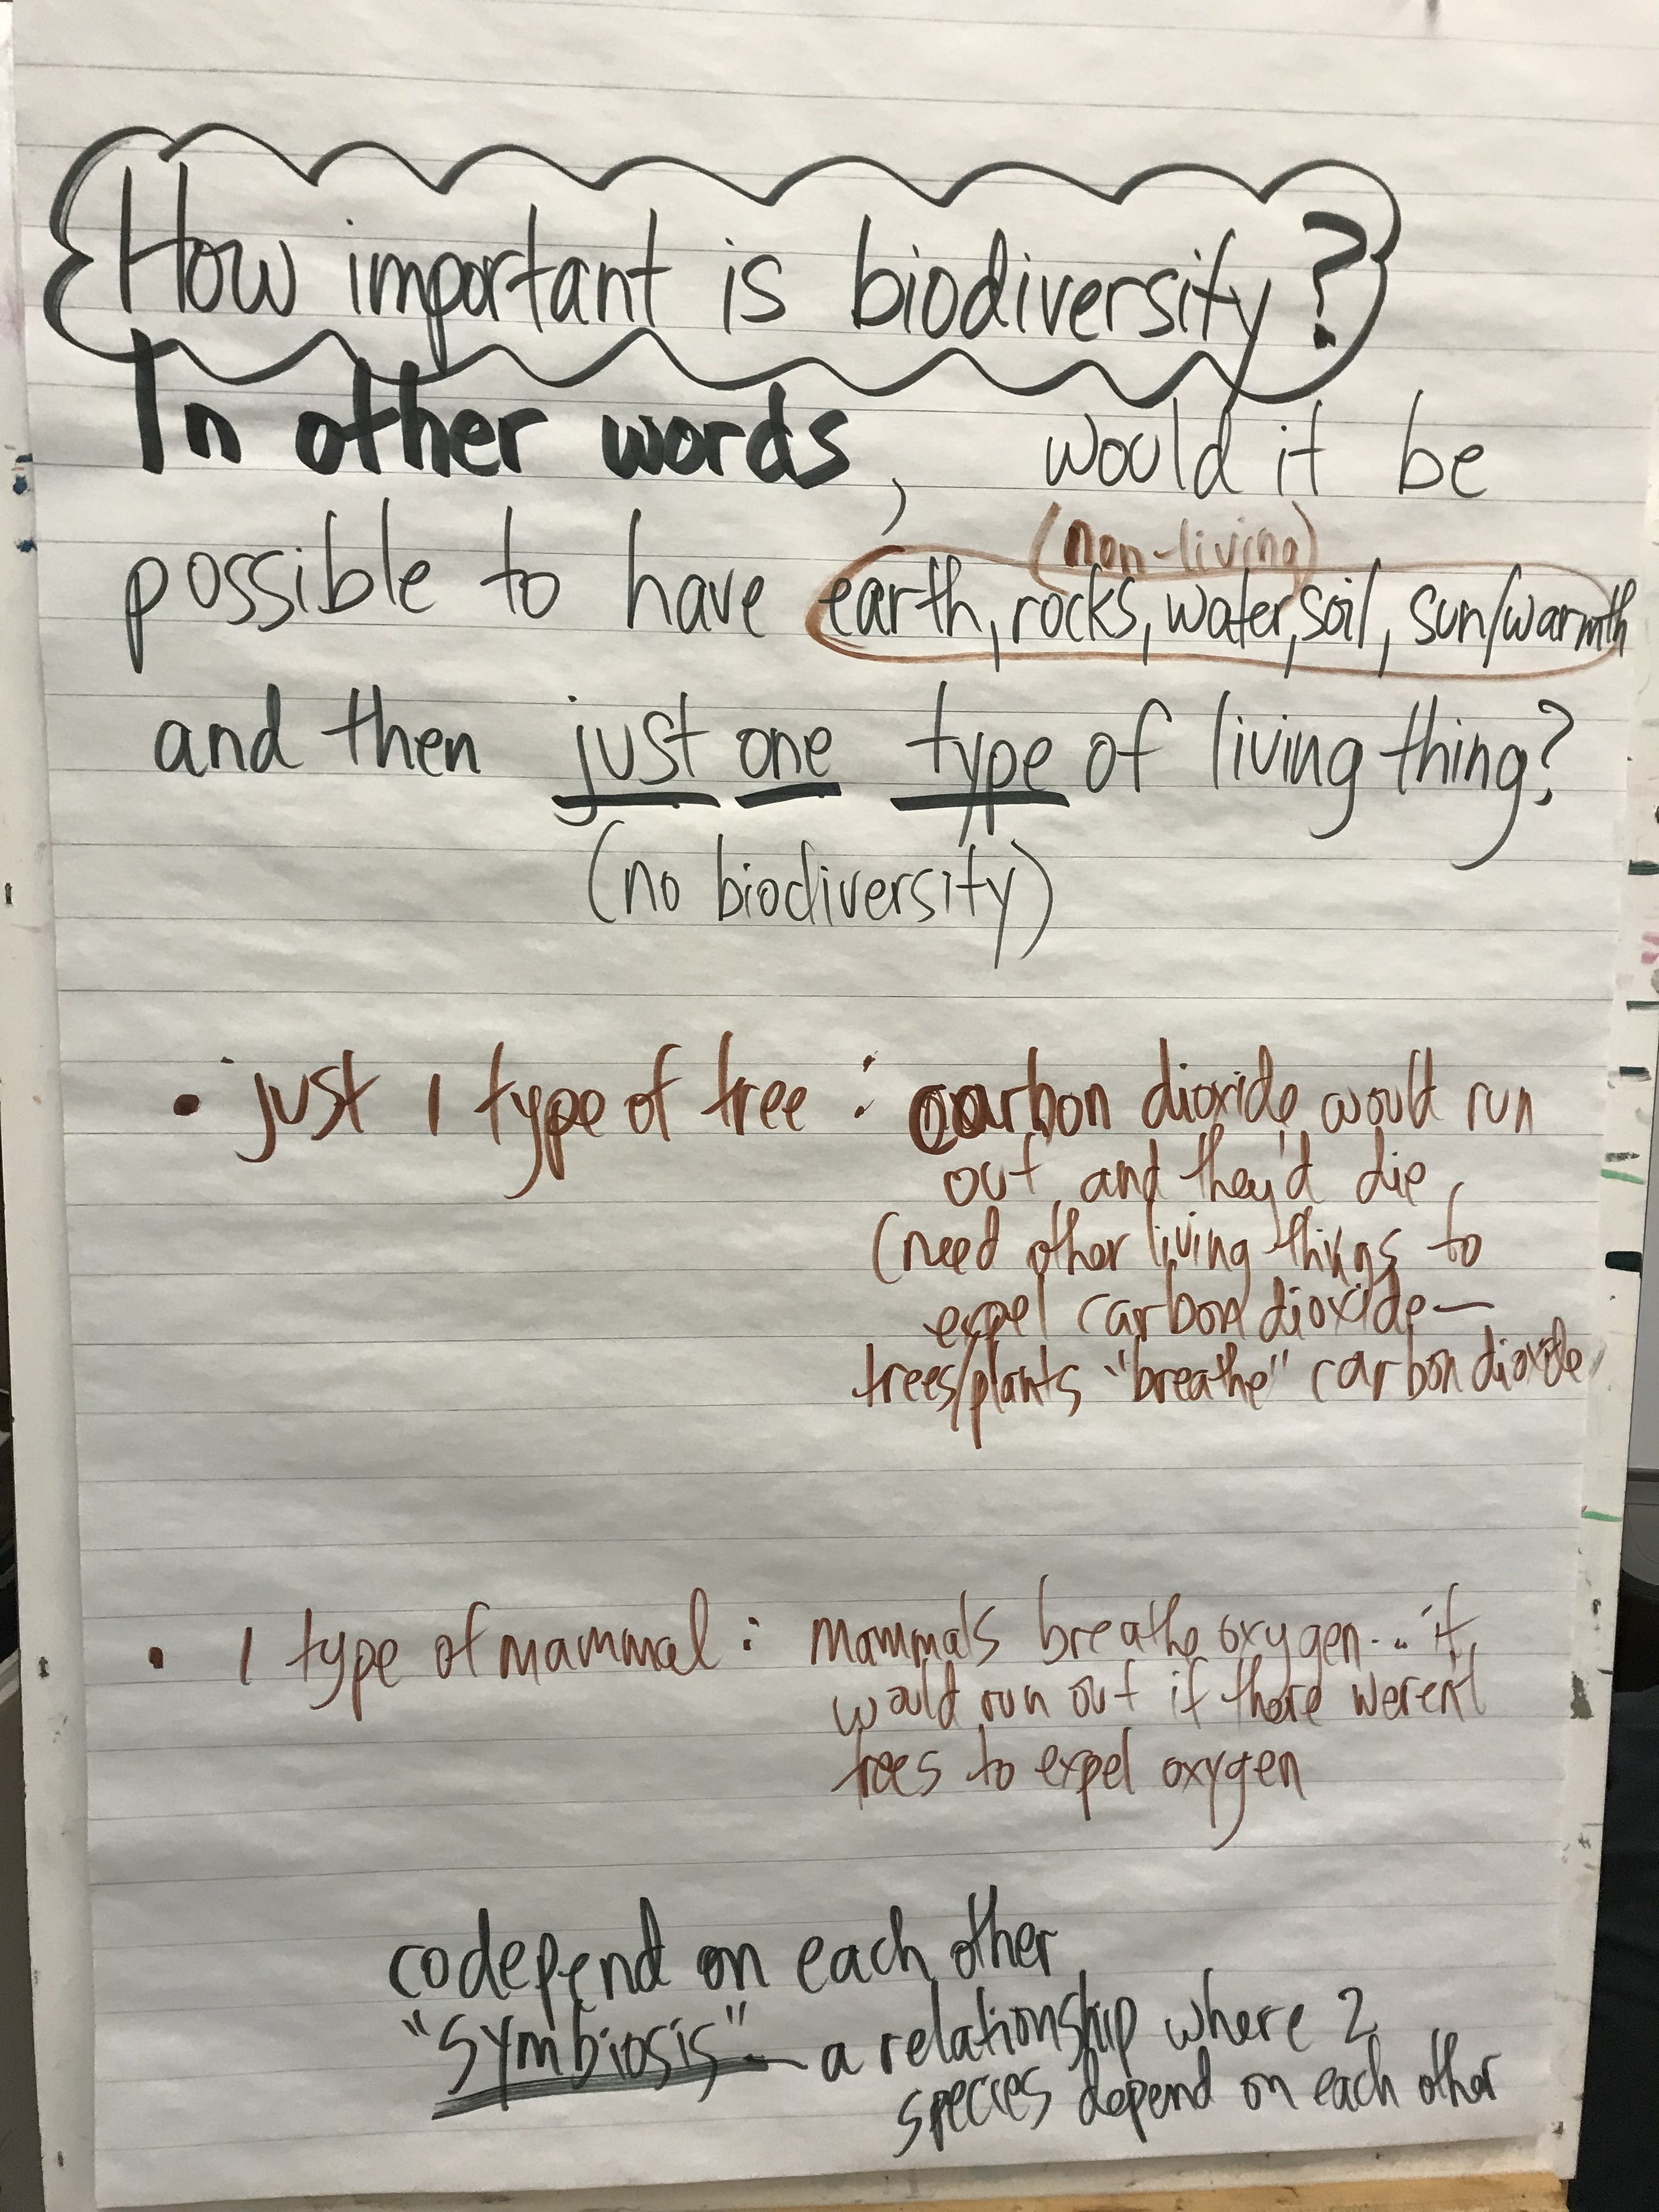 How important is biodiversity?
In other words, would it be
(non-living)
possible to have earth, rocks, water, soil, sun/warmth
and then just one type of living thing?
(no biodiversity)
• just 1 type of tree : carbon dioxide would run
out and they'd die
(need other living things to
expel carbon dioxide—
trees/plants "breathe" carbon dioxide
• 1 type of mammal : mammals breathe oxygen... it
would run out if there weren't
trees to expel oxygen
codepend on each other
"symbiosis" - a relationship where 2
species depend on each other